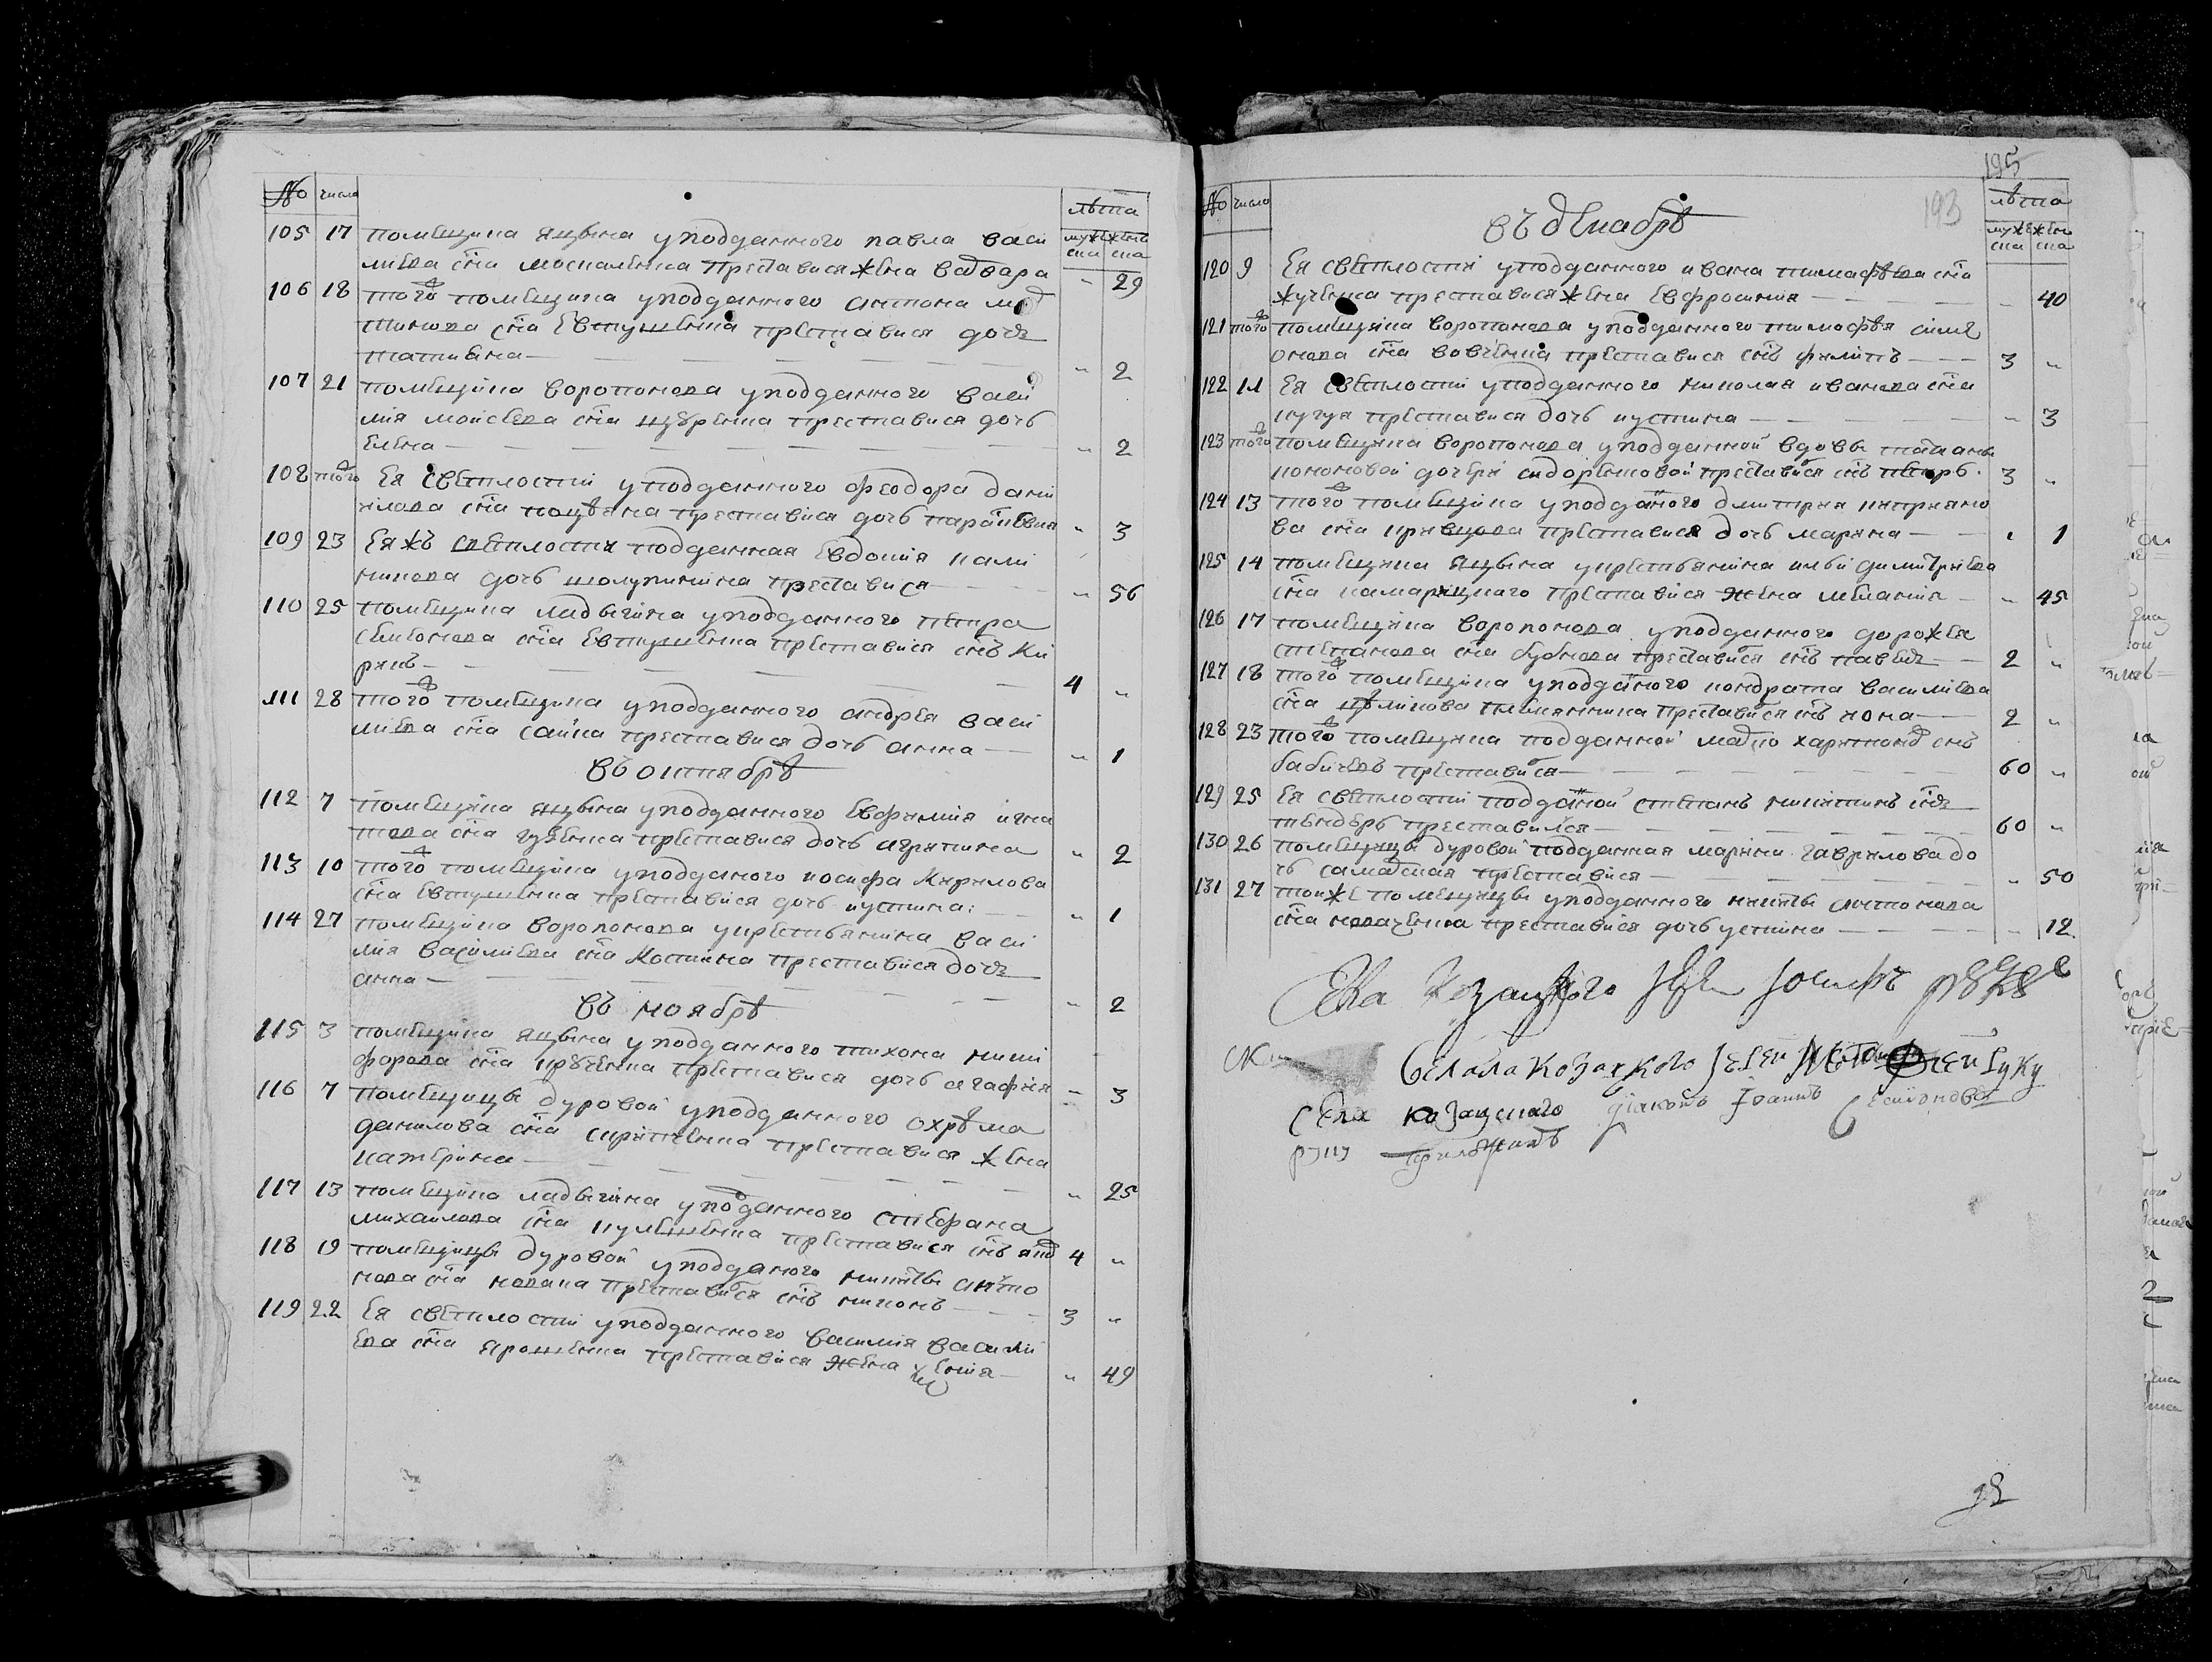 № числа лѣта
мужеска женска
105 17 помещика яцына уподданного павла васи
лиева сн҃а москаленка преставися жена варвара " 29
106 18 тогож помещика уподданного антона мар
тинова сн҃а евтушенка преставися дочь
татияна " 2
107 21 помещика воропонова уподданного васи
лия моисеева сн҃а щуренка преставися дочь
елена " 2
108 тогож Ея светлости уподданного феодора дани
илова сн҃а преставися дочь параскевия " 3
109 23 Еяжъ светлости подданная евдокия кали
никова дочь шолупинина преставися " 56
110 25 помещика ладыгина уподданного петра
семионова сн҃а евтушенка преставися сн҃ъ ки
рикъ 4 "
111 28 тогож помещика уподданного андрея васи
лиева сн҃а саика преставися дочь анна " 1
въ октябрѣ
112 7 помещика яцына уподданного евфимия игна
това сн҃а гузенка преставися дочь агрипина " 2
113 10 тогож помещика уподданого иосифа кирилова
сн҃а евтушенка преставися дочь иустина " 1
114 27 помещика воропонова укрестьянина васи
лия василиева сн҃а костина преставися дочь
анна " 2
въ ноябрѣ
115 3 помещика яцына уподданного тихона ники
форова сн҃а кручѣнка преставися дочь агафия " 3
116 7 помещицы дуровой уподданного охрѣма
данилова сн҃а скрипченка преставися жена
катерина " 25
117 13 помещика ладыгина уподданного стефана
михаилова сн҃а кулешенка преставися сн҃ъ 4 "
118 19 помещицы дуровой уподданого никиты анто
нова сн҃а ковала преставися сн҃ъ никонъ 3 "
119 22 Ея светлости уподданного василия васили
ева сн҃а ярошенка преставися жена ксения " 49
195
193
№ число лѣта
мужеска женска
въ декабрѣ
120 9 Ея светлости уподданного ивана тимофѣева сн҃а
жученка преставися жена евфросиния " 40
121 тогож помещика воропонова уподданного тимофѣя симе
онова сн҃а вовченка преставися сн҃ъ филипъ 3 "
122 11 Ея светлости уподданного николая иванова сн҃а
кугуя преставися дочь иустина " 3
123 тогож помещика воропонова уподданной вдовы татианы
кононовой дочери сидоренковой преставися сн҃ъ петръ 3 "
124 13 тогож помещика уподданого дмитрия киприяно
ва сн҃а кривцова преставися дочь марина " 1
125 14 помещика яцына укрестьянина ильи димитриева
сн҃а камарицкаго преставися жена мелания " 45
126 17 помещика воропонова уподданного дорофея
степанова сн҃а бубнова преставися сн҃ъ павелъ 2 "
127 18 тогож помещика уподданого кондрата василиева
сн҃а племянника преставися сн҃ъ иона 2 "
128 23 тогож помещика подданной марко харитоновъ сн҃ъ
бабичевъ преставися 60 "
129 25 Ея светлости подданой степанъ никитинъ сн҃ъ
тендеръ преставился 60 "
130 26 помещицы дуровой подданная марина гаврилова до
чь самарская преставися " 50
131 27 тоиже помещицы уподданного никиты антонова
сн҃а коваленка преставися дочь устина " 12
села козацкого иерей иосифъ
села козацкого иерей руку
села козацкого діаконъ іоаннъ
руку приложилъ